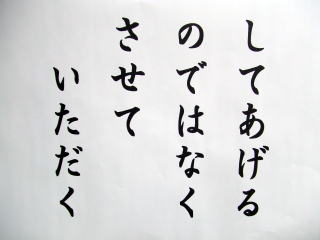 してあげる
のではなく
させて
いただく